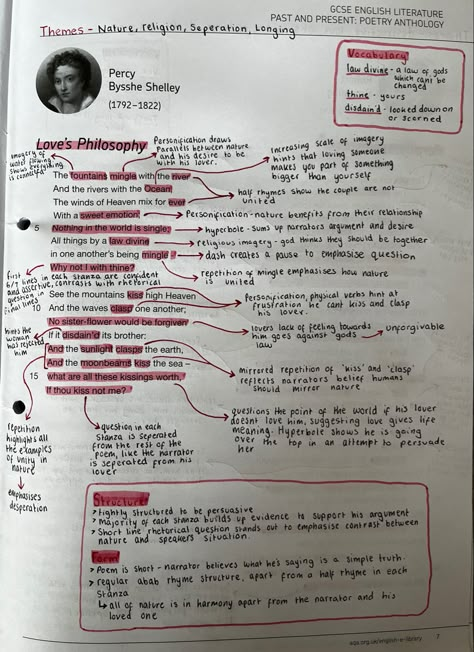 GCSE ENGLISH LITERATURE
PAST AND PRESENT: POETRY ANTHOLOGY
Themes - Nature, religion, Seperation, Longing
Percy
Bysshe Shelley
(1792–1822)
Vocabulary
law divine - a law of gods
which cant be
changed
thine - yours
disdain'd - looked down on
or scorned
Love's Philosophy
imagery of
water flowing
shows everything
is connected
Personification draws
Parallels between nature
and his desire to be
with his lover.
increasing scale of imagery
hints that loving someone
makes you part of something
bigger than yourself
The fountains mingle with the river
And the rivers with the Ocean,
The winds of Heaven mix for ever
With a sweet emotion;
5 Nothing in the world is single;
All things by a law divine
in one another's being mingle –
Why not I with thine?
half rhymes show the couple are not
united
Personification - nature benefits from their relationship
hyperbole - sums up narrators argument and desire
religious imagery - god thinks they should be together
dash creates a pause to emphasise question
repetition of mingle emphasises how nature
is united
first
6/7 lines in each stanza are confident
and assertive, contrasts with rhetorical
question in
final lines
See the mountains kiss high Heaven
10 And the waves clasp one another;
No sister-flower would be forgiven
If it disdain'd its brother:
And the sunlight clasps the earth,
And the moonbeams kiss the sea –
15 what are all these kissings worth,
If thou kiss not me?
Personification, physical verbs hint at
frustration he cant kiss and clasp
his lover.
hints the
woman
has rejected
him
lovers lack of feeling towards
him goes against gods
law
unforgivable
mirrored repetition of 'kiss' and 'clasp'
reflects narrators belief humans
should mirror nature
questions the point of the world if his lover
doesnt love him, suggesting love gives life
meaning. Hyperbole shows he is going
over the top in an attempt to persuade
her
repetition
highlights all
the examples
of unity in
nature
emphasises
desperation
question in each
Stanza is seperated
from the rest of the
poem, like the narrator
is seperated from his
lover
Structure
> tightly structured to be persuasive
> Majority of each stanza builds up evidence to support his argument
> Short line rhetorical question stands out to emphasise contrast between
nature and speakers situation.
Form
> Poem is short - narrator believes what he's saying is a simple truth
> regular abab rhyme structure, apart from a half rhyme in each
Stanza
↳ all of nature is in harmony apart from the narrator and his
loved one
aqa.org.uk/english-e-library 7